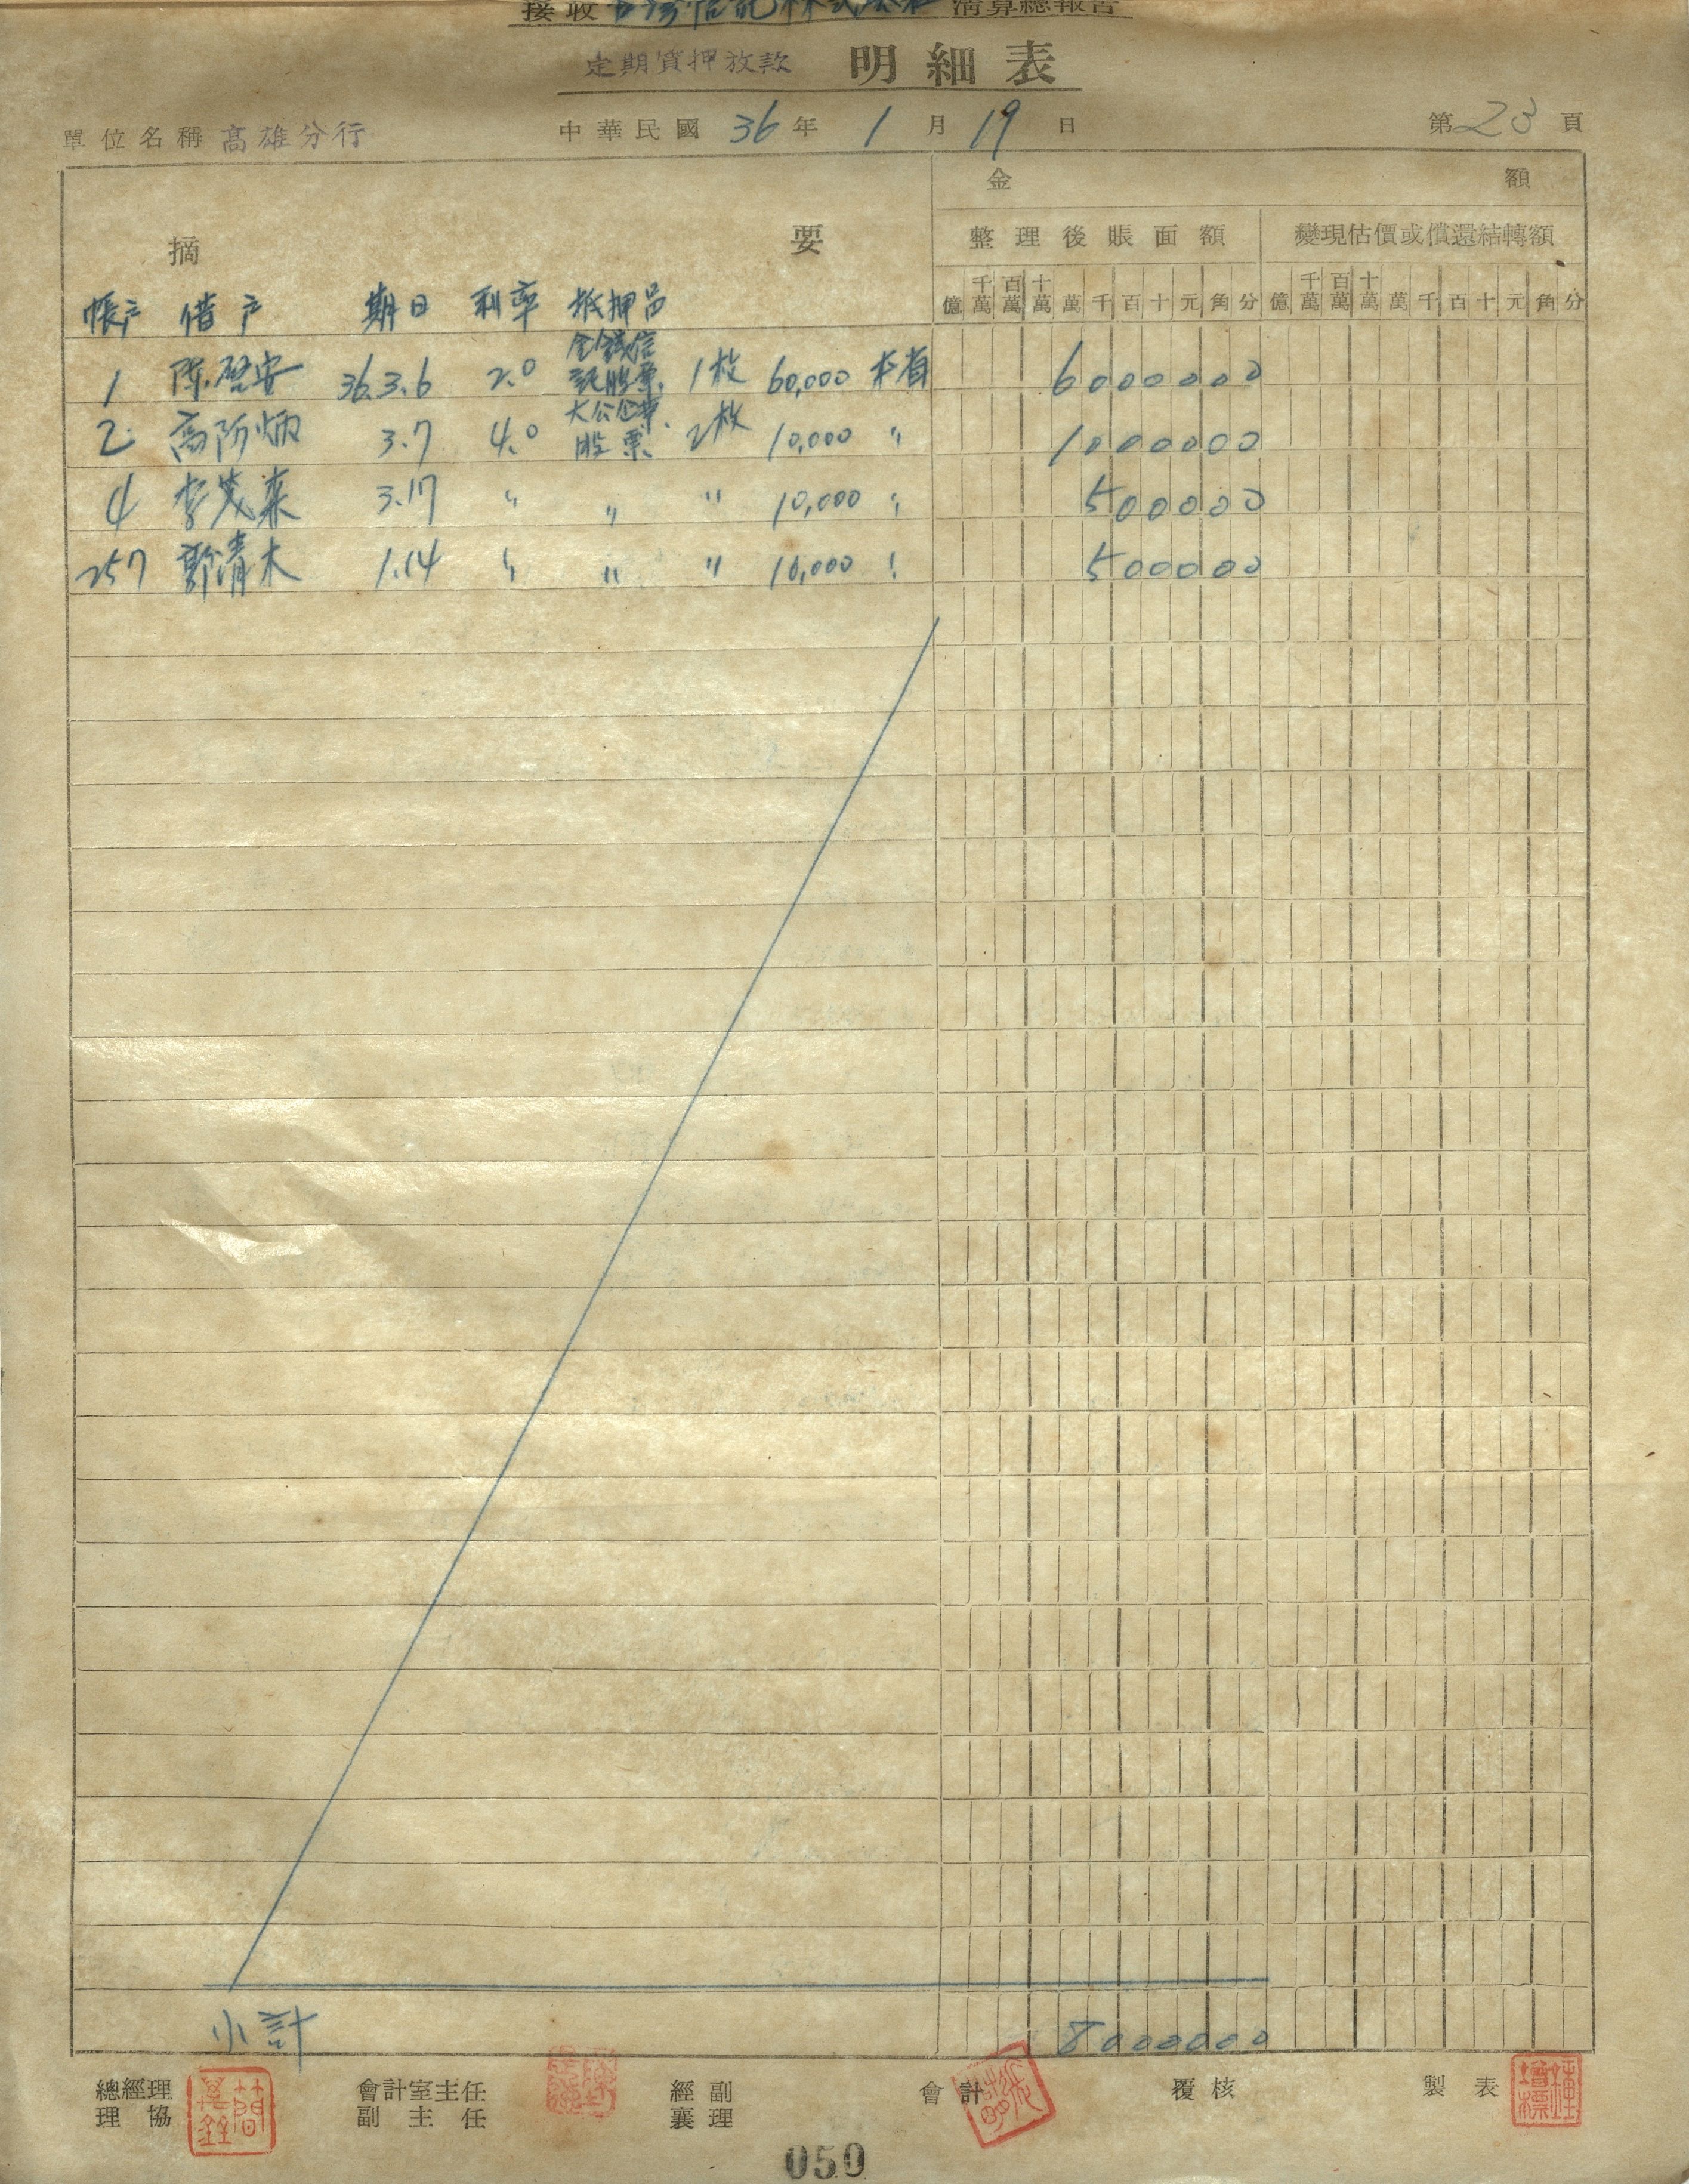 接收台灣信託株式会社清算總報告
定期質押放款 明細表
單位名稱 高雄分行 中華民國 36 年 1 月 19 日 第 23 頁
摘要 金額
整理後賬面額 變現估價或償還結轉額
億 千萬 百萬 十萬 萬 千 百 十 元 角 分 億 千萬 百萬 十萬 萬 千 百 十 元 角 分
帳戶 借戶 期日 利率 抵押品
1 陳啓安 36.3.6 2.0 信託股票 1枚 60,000 本省 6000000
2 高 炳 3.7 4.0 大公企業股票 2枚 10,000 〃 1000000
4 李茂 3.17 〃 〃 〃 10,000 〃 500000
257 鄭清木 1.14 〃 〃 〃 10,000 〃 500000
小計 8000000
總經理 協理 會計室主任 副主任 經副襄理 會計 覆核 製表
050